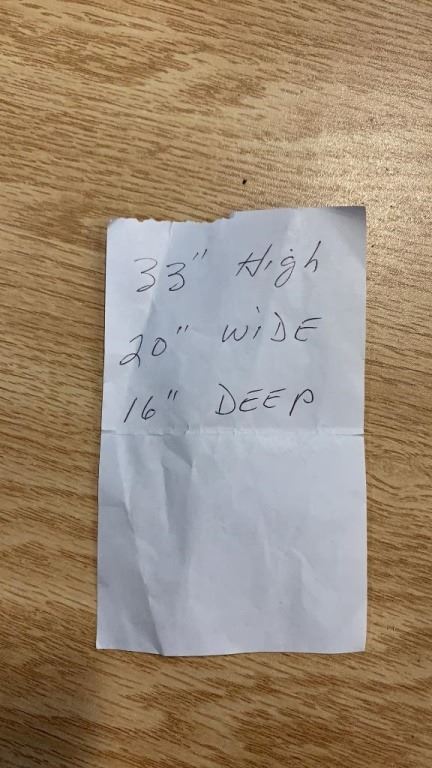 33" High
20" WiDE
16" DEEP